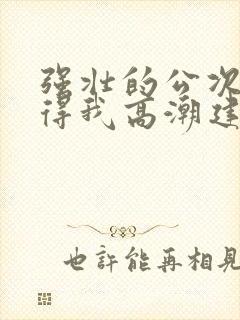 强壮的公次
得我高潮连
也許能再相見